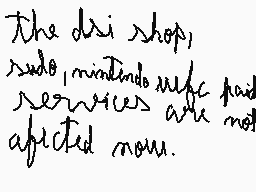 the dsi shop,
sudo, nintendo wfc paid
services are not
afected now.